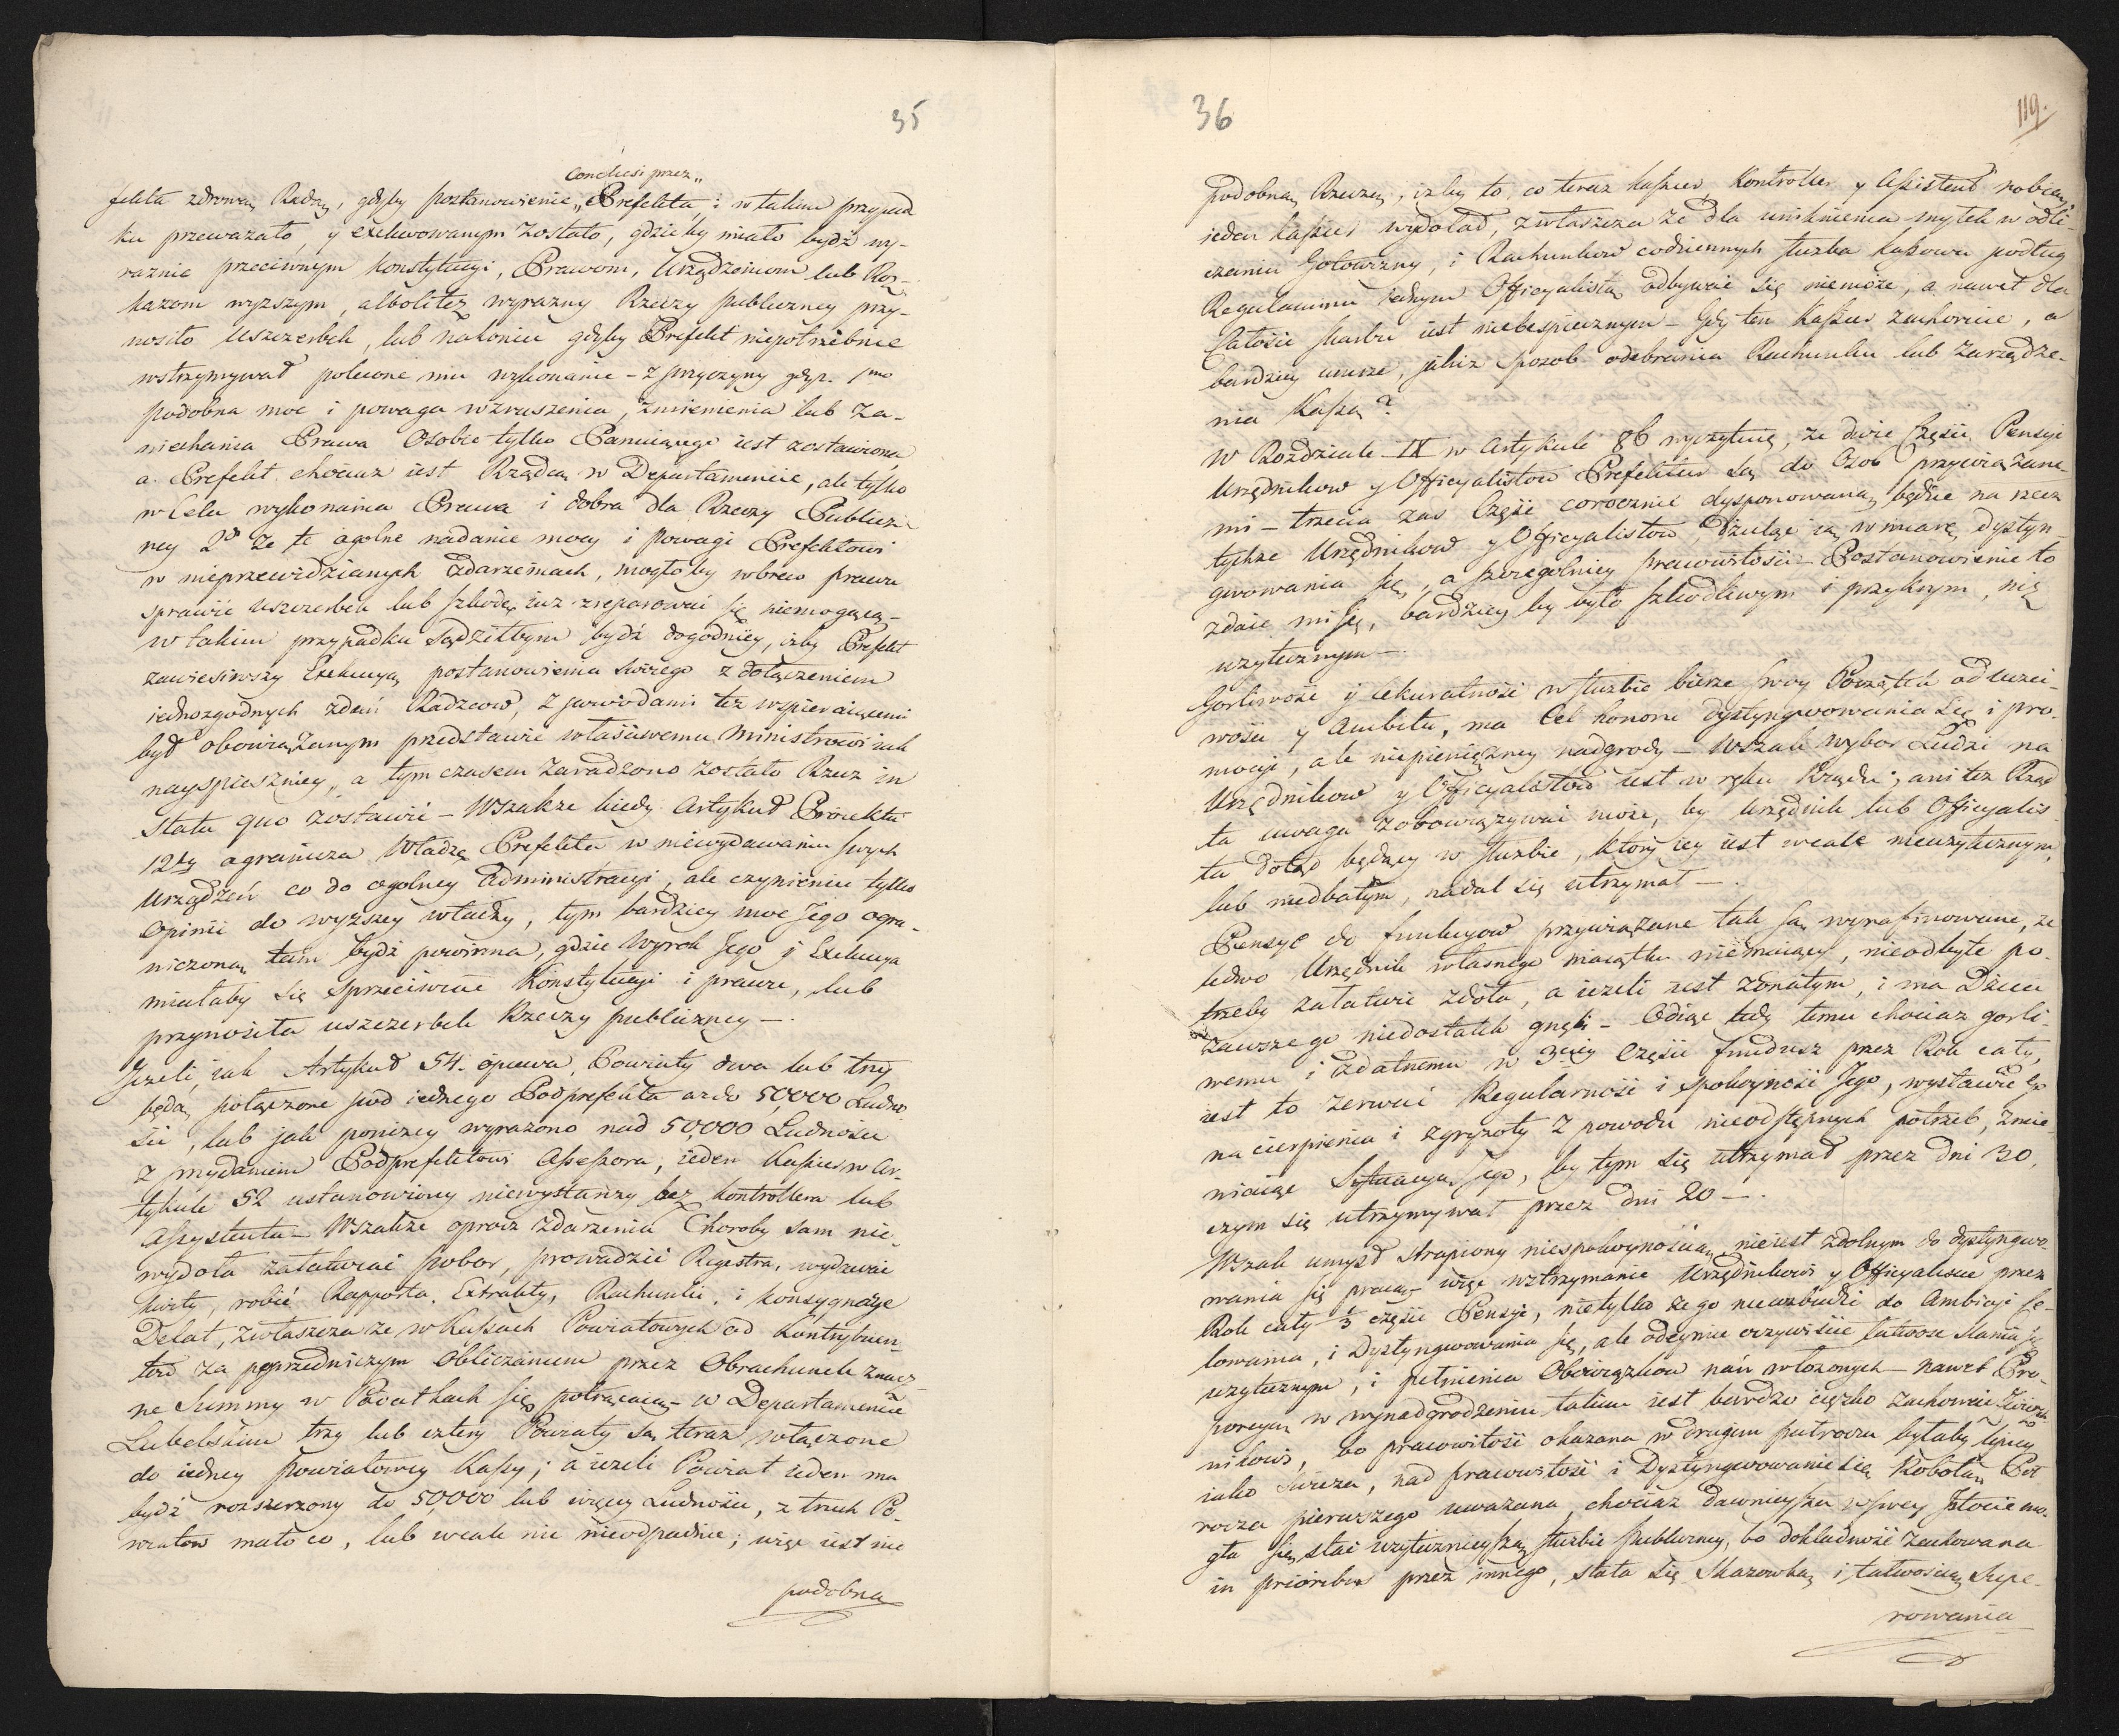 35
Conclusi przez „
fekta zdrową Radą, gdyby postanowienie „ Prefekta, i w takim przypad
ku przeważało, y exekwowanym zostało, gdzieby miało bydź wy-
raznie przeciwnym Konstytucyi, Prawom, Urządzeniom lub Roz-
kazom wyzszym, albolitez wyrazny Rzeczy publiczney przy-
nosiło uszczerbek, lub nakoniec gdyby Prefekt niepotrzebnie
wstrzymywał polecone mu wykonanie – z przyczyny gdyż. 1mo
podobna moc i powaga wzruszenia, zmienienia lub za-
niechania Prawa Osobie tylko Panuiącego iest zostawiona
a Prefekt chociaz iest Rządcą w Departamencie, ale tylko
w Celu wykonania Prawa i dobra dla Rzeczy Publicz-
ney 2do Ze te ogolne nadanie mocy i powagi Prefektowi
w nieprzewidzianych zdarzeniach, mogłoby wbrew prawu
sprawić uszczerbek lub szkodę iuz zreparować się niemogącą –
w takim przypadku sądziłbym bydź dogodniey, izby Prefekt
zawiesiwszy Exekucyą postanowienia swoiego z dołączeniem
iednozgodnych zdań Radzcow, z powodami tez wspieraiącemi
był obowiązanym przedstawić właściwemu Ministrowi iak
nayspieszniey, a tym czasem zaradzono zostało Rzecz in
Statu quo zostawić – Wszakze kiedy Artykuł Proiektu
12ty ogranicza Władzę Prefekta w niewydawaniu swych
Urządzeń co do ogolney Administracyi, ale czynieniu tylko
Opinii do wyższey władzy, tym bardziey moc Jego ogra-
niczoną tam bydź powinna, gdzie Wyrok Jego y Exekucya
miałaby się sprzeciwiać Konstytucyi i prawu, lub
przynosiła uszczerbek Rzeczy publiczney –.
Jezeli, iak Artykuł 54. opiewa, Powiaty dwa lub trzy
będą połączone pod iednego Podprefekta az do 50,000 Ludno
sci, lub jak poniżey wyrażono nad 50,000 Ludności
z przydaniem Podprefektowi Assessora, ieden Kassier w Ar-
tykule 52 ustanowiony niewystarczy bez Kontrollera lub
Assystenta – Wszakże oprocz zdarzenia Choroby sam nie
wydoła załatwiać pobor, prowadzić Regestra, wydawać
kwity, robić Rapporta, Extrakty, Rachunki, i Konsygnacye
Delat, zwłaszcza ze w Kassach Powiatowych od Kontrybuen-
tow za poprzedniczym Obliczaniem przez Obrachunek znacz-
ne Summy w Podatkach się potrącaią – w Departamencie
Lubelskim trzy lub cztery Powiaty są teraz włączone
do iedney powiatowey Kassy; a iezeli Powiat ieden ma
bydź rozszerzony do 50000 lub więcey Ludności, z trzech Po-
wiatow mało co, lub wcale nic nieodpadnie; więc iest nie
podobną
36
119.
podobną Rzeczą, izby to, co teraz Kassier Kontroller y Assistent robią,
ieden Kassier wydołał, zwłaszcza że dla uniknienia mylek w odli-
czaniu Gotowizny, i Rachunkow codziennych służba Kassowa podług
Regulaminu iednym Officyalistą odbywać się niemoże, a nawet dla
Całości skarbu iest niebespiecznym – Gdy ten Kassier zachoruie, a
bardziey umrze, jakiz sposob odebrania Rachunku lub Zarządze-
nia Kassą?
W Rozdziale IX w Artykule 86 wyczytuię, że dwie Części Pensyi
Urzędnikow y Officyalistow Prefektur są do Osob przywiązane-
mi – trzecia zas Część corocznie dysponowaną będzie na rzecz
tychże Urzędnikow y Officyalistow, dzieląc ią w miarę, dystyn-
gwowania się, a szczegolniey pracowitości – Postanowienie to
zdaie mi się, bardziey by było szkodliwym i przykrym, niż
uzytecznym –.
Gorliwość y akuratność w służbie bierze swoy Początek od uczci-
wości y Ambitu, ma Cel honoru dystyngwowania się i pro-
mocyi, ale niepieniężney nadgrody – Wszak wybor Ludzi na
Urzędnikow y Officyalistow iest w ręku Rządu; ani tez Rząd
ta uwaga zobowiązywać może, by Urzędnik lub Officyalis-
ta dotąd będący w służbie, ktory iey iest wcale nieuzytecznym,
lub niedbałym, nadal się utrzymał –.
Pensye do funkcyow przywiązane tak są wyrafinowane, ze
ledwo Urzędnik własnego maiątku niemaiący, nieodbyte po-
trzeby załatwić zdoła, a iezeli iest zonatym, i ma Dzieci
zawsze go niedostatek gnębi – Odiąć tedy temu chociaz gorli-
wemu i zdatnemu w 3ciey Części fundusz przez Rok cały,
iest to zerwać Regularność i spokoyność Jego, wystawić Go
na cierpienia i zgryzoty z powodu nieodstępnych potrzeb, zmie-
niaiąc Sytuacyą Jego, by tym się utrzymał przez dni 30,
czym się utrzymywał przez dni 20 –.
Wszak umysł strapiony niespokoynością nieiest zdolnym do dystyngwo-
wania się pracą – więc wstrzymanie Urzędnikowi y Officyaliscie przez
Rok cały ⅓ części Pensyi, nietylko że go niewzbudzi do Ambicyi ce-
lowania, i Dystyngwowania się, ale odeymie oczywiście łatwość stania się
uzytecznym, i pełnienia Obowiązkow nań włożonych – nawet Pro-
porcyą w wynadgrodzeniu takim iest bardzo ciężko zachować Zwierzch
nikowi, bo pracowitość okazana w drugim pułroczu byłaby lepiey
iako świeża, nad pracowitość i Dystyngwowanie się Robotą Puł
rocza pierwszego uważana, chociaz dawnieysza w swey Istocie mo-
gła się stać uzytecznieyszą służbie publiczney, bo dokładność zachowana
in prioribus przez innego, stała się skazowką i łatwością Supe-
rowania